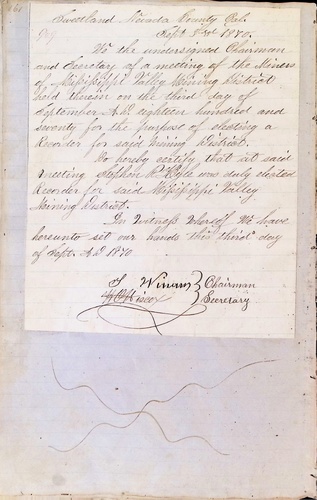 Sweetland Nevada County Cal.
Sept 3rd 1870.
We the undersigned Chairman
and Secretary of a meeting of the Miners
of Mississippi Valley Mining District
held therein on the third day of
September A.D. eighteen hundred and
seventy for the purpose of electing a
Recorder for said Mining District.
Do hereby certify that at said
meeting Stephen P. was duly elected
Recorder for said Mississippi Valley
Mining District.
In Witness Whereof We have
hereunto set our hands this third day
of Sept. A.D. 1870
Chairman
Secretary